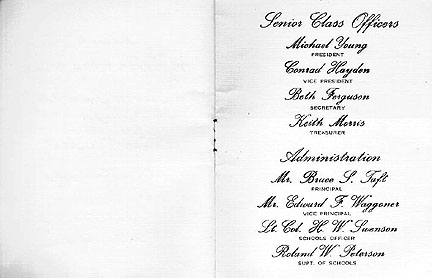 Senior Class Officers
Michael Young
PRESIDENT
Conrad Hayden
VICE PRESIDENT
Beth Ferguson
SECRETARY
Keith Morris
TREASURER
Administration
Mr. Bruce S. Taft
PRINCIPAL
Mr. Edward F. Waggoner
VICE PRINCIPAL
Lt. Col. H. W. Swenson
SCHOOLS OFFICER
Roland W. Peterson
SUPT. OF SCHOOLS